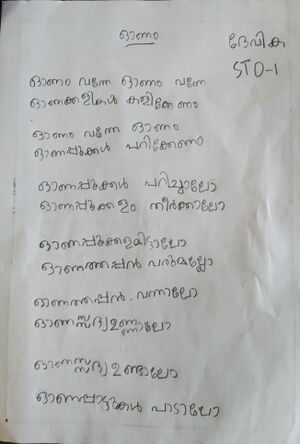 ഓണം
ദേവിക
STD-1
ഓണം വന്നേ ഓണം വന്നേ
ഓണക്കളികൾ കളിക്കേണം
ഓണം വന്നേ ഓണം
ഓണപ്പൂക്കൾ പറിക്കേണം
ഓണപ്പൂക്കൾ പറിച്ചാലോ
ഓണപ്പൂക്കളം തീർക്കാലോ
ഓണപ്പൂക്കളമിട്ടാലോ
ഓണത്തപ്പൻ വരുമല്ലോ
ഓണത്തപ്പൻ വന്നാലോ
ഓണസ്സദ്യ ഉണ്ണാലോ
ഓണസ്സദ്യ ഉണ്ടാലോ
ഓണപ്പാട്ടുകൾ പാടിലോ